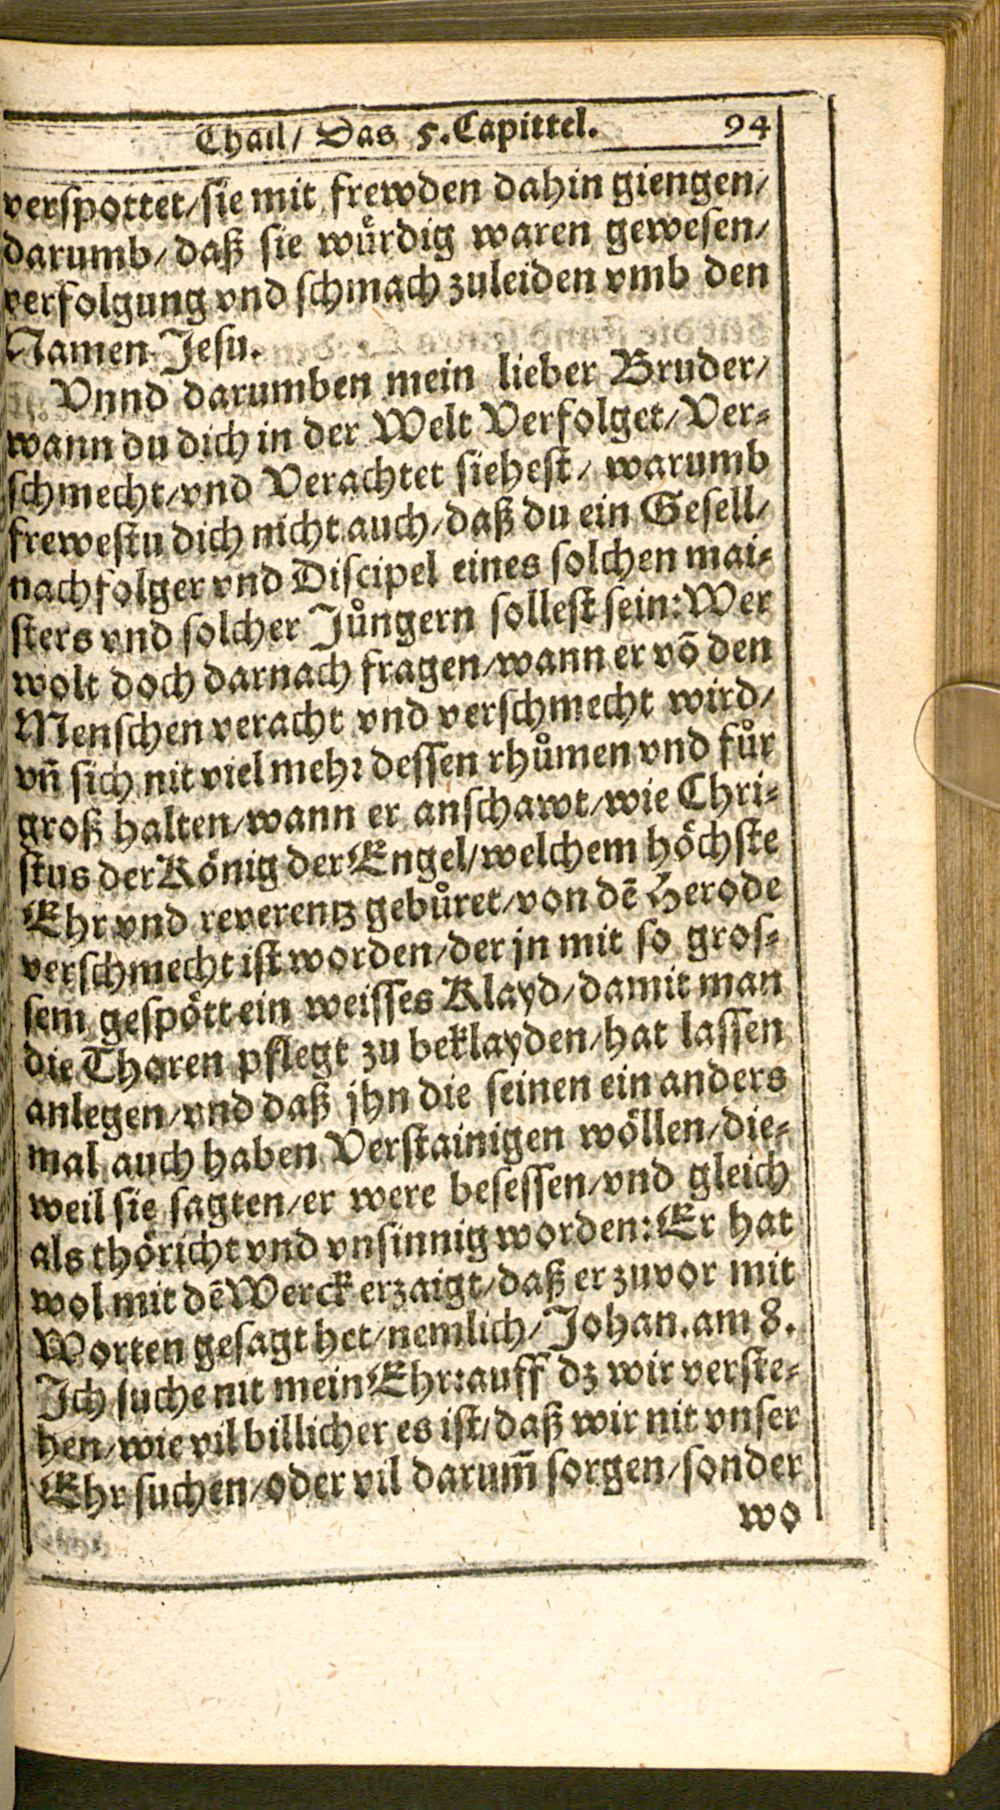 Thail/ Das 5. Capittel. 94
verspottet/sie mit frewden dahin giengen/
darumb/daß sie würdig waren gewesen/
verfolgung vnd schmach zuleiden vmb den
Namen Jesu.
Vnnd darumben mein lieber Bruder/
wann du dich in der Welt Verfolget/Ver-
schmecht/vnd Verachtet siehest/ warumb
frewestu dich nicht auch/daß du ein Gesell/
nachfolger vnd Discipel eines solchen mai-
sters vnd solcher Jůngern sollest sein: Wer
wolt doch darnach fragen/wann er võ den
Menschen veracht vnd verschmecht wird/
vñ sich nit viel mehr dessen rhůmen vnd fůr
groß halten/wann er anschawt/wie Chri-
stus der König der Engel/welchem höchste
Ehr vnd reverentz gebůret/von dẽ Herode
verschmecht ist worden/der jn mit so gros-
sem gespött ein weisses Klayd/damit man
die Thoren pflegt zu beklayden/hat lassen
anlegen/vnd daß jhn die seinen ein anders
mal auch haben Verstainigen wöllen/die-
weil sie sagten/er were besessen/vnd gleich
als thöricht vnd vnsinnig worden: Er hat
wol mit dẽ Werck erzaigt/daß er zuvor mit
Worten gesagt het/nemlich/Johan. am 8.
Ich suche nit mein Ehr: auff dz wir verste-
hen/wie vil billicher es ist/daß wir nit vnser
Ehr suchen/oder vil darum̃ sorgen/sonder
wo